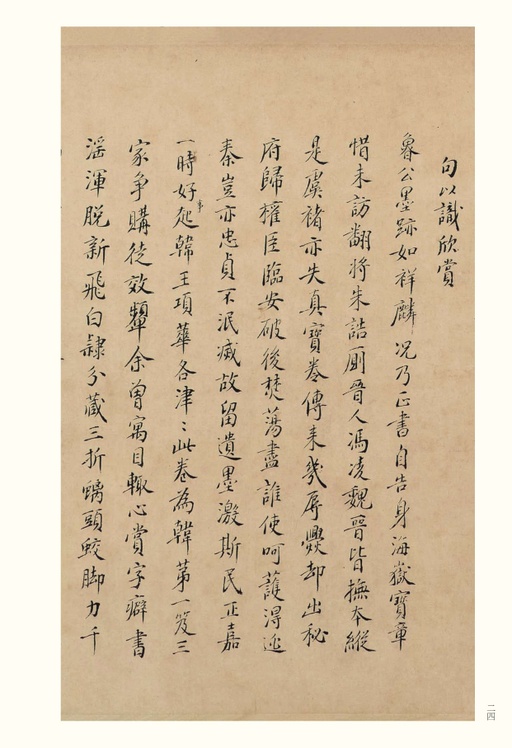 句以識欣賞
魯公墨跡如祥麟况乃正書自告身海嶽寶章
惜未訪翻將朱誥厠晉人馮凌魏晉皆撫本縱
是虞褚亦失真寶卷傳来幾辱爨却出秘
府歸權臣臨安破後焚蕩盡誰使呵護淂逃
秦豈亦忠貞不泯滅故留遺墨激斯民正嘉
一時好事韓王項華各津〻此卷為韓第一笈三
家爭購徒效顰余曾寓目輙心賞字癖書
滛渾脫新飛白隷分藏三折蠆頭蛟脚力千
二四